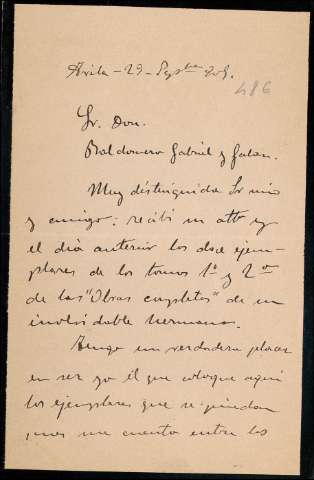 Avila - 29 - Sepbre 909.
486
Sr. Don.
Baldomero Gabriel y Galan.
Muy distinguido Sr mio
y amigo: recibi su atta y
el dia anterior los doce ejem-
plares de los tomos 1º y 2º
de las "Obras completas" de su
inolvidable hermano.
Tengo un verdadero placer
en ser yo el que coloque aqui
los ejemplares que se pueda
pues me cuento entre los